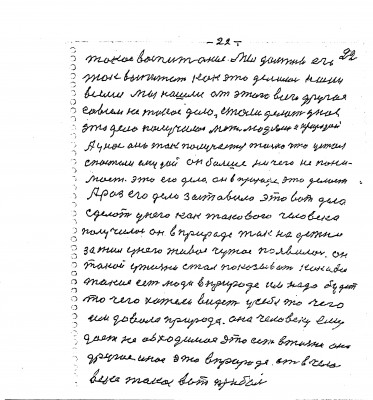 – 22 – 22
такое воспитание. Мы должны его
так воспитат как это делали наши
всеми мы нашли от этого всего другая
совсем не такое дело, стали делат у нас
это дело получилос меж людями и природой
А у нас
он болше ничего не пони-
мает. это его дело он в природе это делает
А раз его дело заставило это вот дело
сделат у него как такового человека
получилос он в природе так на детях
зажил у него живое чутое появилос. он
такой у жизни стал показыват какаво
такие ест люди в природе им надо будет
то чего хотели видет у себя то чего
им довала природа. она человеку ему
дает не обходимая это ест в жизни она
другое иное это в природе. от в чело
века такое вот прибыл